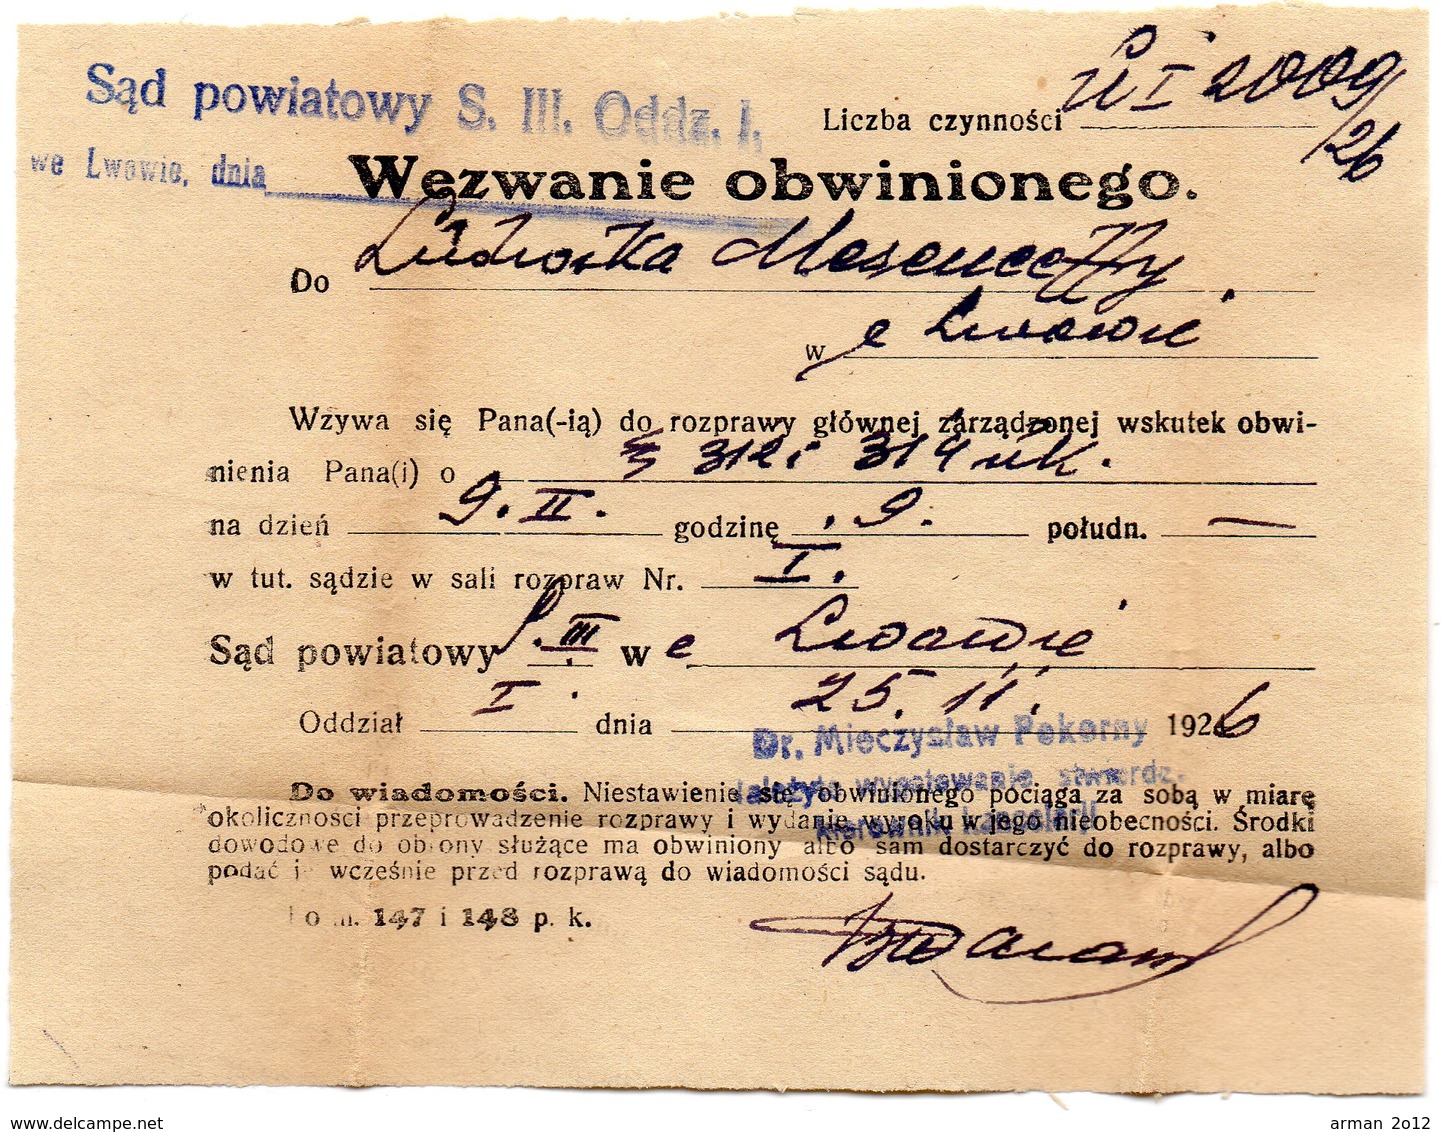 Sąd powiatowy S. III. Oddz. I.
we Lwowie, dnia
Liczba czynności U I 2009/26
Wezwanie obwinionego.
Do Ludwika
w e Lwowie
Wzywa się Pana(-ią) do rozprawy głównej zarządzonej wskutek obwi-
nienia Pana(i) o § 312 i 314 uk.
na dzień 9. II. godzinę 9. południ. —
w tut. sądzie w sali rozpraw Nr. I.
Sąd powiatowy S. III w e Lwowie
Oddział I. dnia 25. 11. 1926
Dr. Mieczysław Pekorny
Za należyte wygotowanie stwierdz.
kierownik kancelarji
Do wiadomości. Niestawienie się obwinionego pociąga za sobą w miarę
okoliczności przeprowadzenie rozprawy i wydanie wyroku w jego nieobecności. Środki
dowodowe do obrony służące ma obwiniony albo sam dostarczyć do rozprawy, albo
podać je wcześnie przed rozprawą do wiadomości sądu.
147 i 148 p. k.
www.delcampe.net
arman 2012